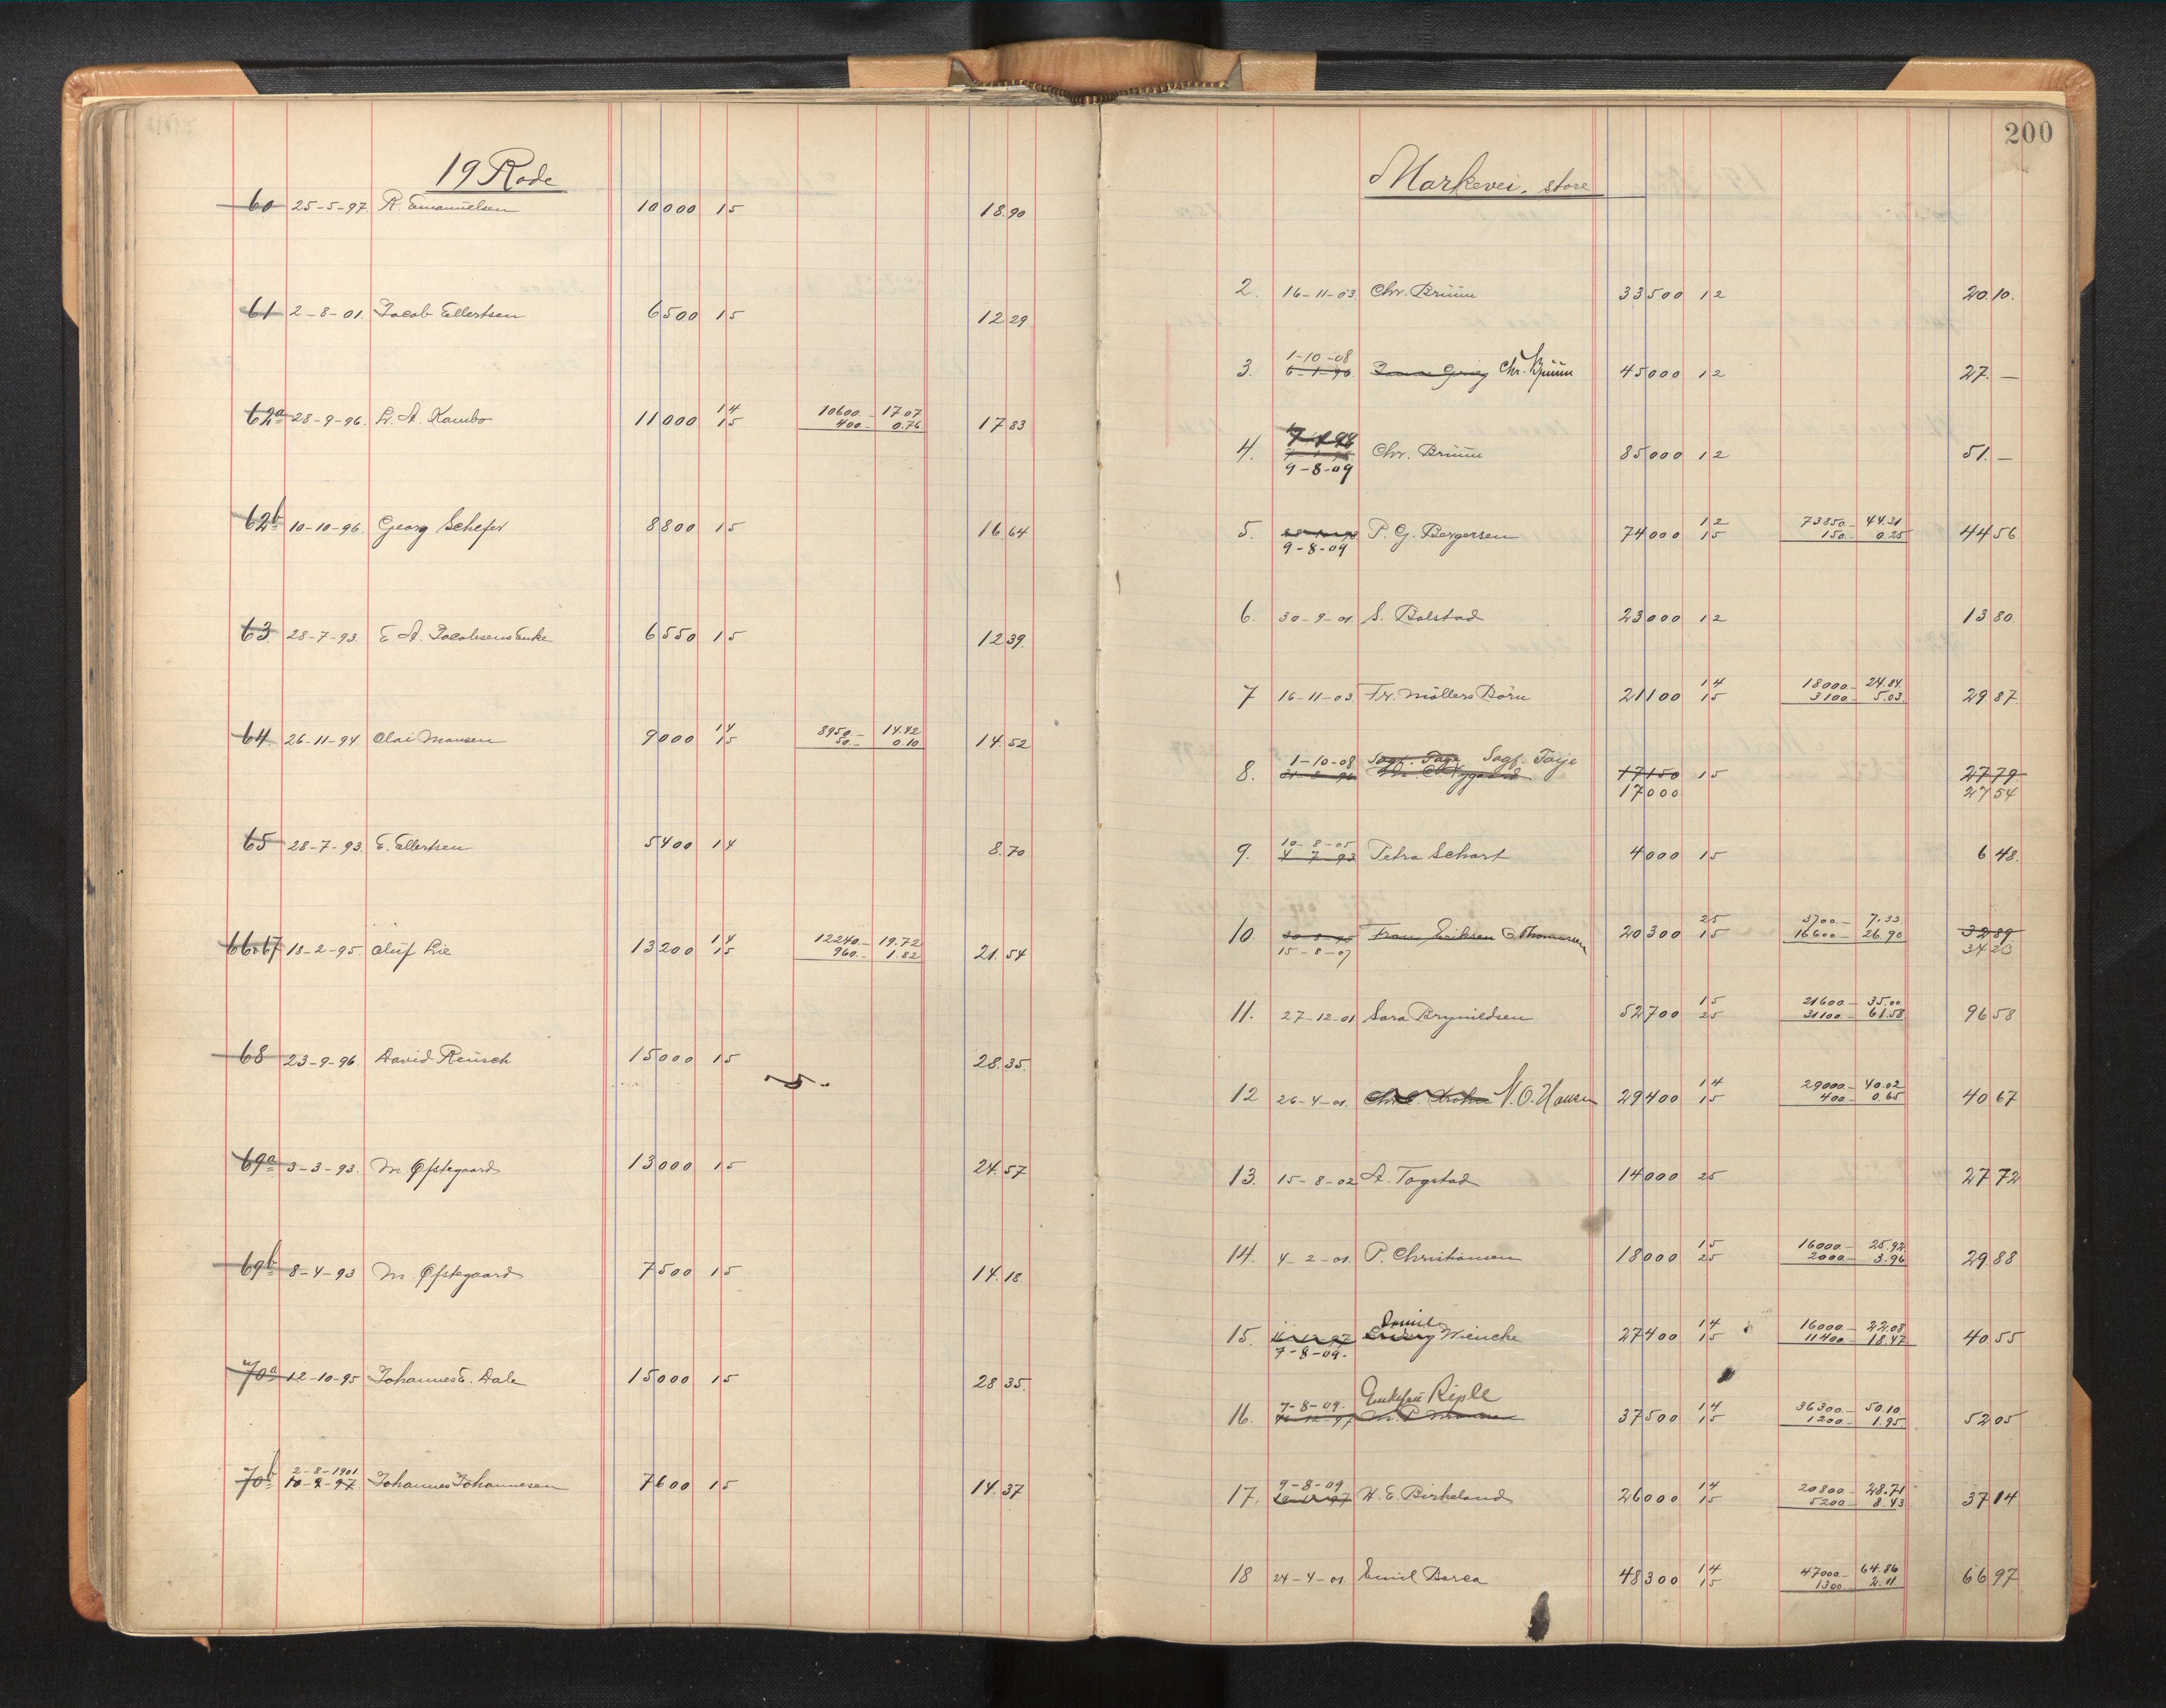 19 Rode
60 25-5-97. R. Emanuelsen 10000 15 18.90
61 2-8-01. Jacob Ellertsen 6500 15 12 29
14 10600.- 17.07
62a 28-9-96. L. A. Kambo 11000 15 400.- 0.76 17 83
62b 10-10-96. Georg Schefer 8800 15 16.64
63. 28-7-93. E. A. Jacobsens Enke 6550 15 12 39.
14 8950.- 14.42
64. 26-11-94. Olai Monsen 9000 15 50.- 0.10 14.52
65 28-7-93. E. Ellertsen 5400 14 8.70
14 12240.- 19.72
66.67 18-2-95. Oluf Lie 13200 15 960.- 1.82 21.54
68 23-9-96. David Reusch 15000 15 28.35.
69a 3-3-93. M. Øfstegaard 13000 15 24.57
69b 8-4-93 M. Øfstegaard 7500 15 14.18.
70a 12-10-95 Johannes E. Dale 15000 15 28 35.
2-8-1901.
70b 10-2-97. Johannes Johannesen 7600 15 14.37
200
Markevei, store
2. 16-11-03 Chr. Bruun 33500 12 20.10.
1-10-08
3. 6-1-96 Grieg Chr. Bruun 45000 12 27.—
4. Chr. Bruun 85000 12 51.—
9-8-09
12 73850.- 44.31
5. P. G. Bergersen 74000 15 150.- 0.25 44 56
9-8-09
6. 30-9-01 S. Bolstad 23000 12 13 80.
14 18000.- 24.84.
7 16-11-03 Fr. Møllers Børn 21100 15 3100.- 5.03. 29 87.
1-10-08 Sagf. Taije Sagf. Taije
8. 17150 15 27 79
17000 27 54
10-8-05
9. 4-7-93 Petra Schart 4000 15 6 48.
25 3700.- 7.33.
10. Eriksen Thomassen 20300 15 16600.- 26.90 32 89
15-8-07 34 23
15 21600.- 35.00.
11. 27-12-01 Sara Brynildsen 52700 25 31100.- 61.58 96 58
14 29000.- 40.02
12 26-4-01. N. O. Hansen 29400 15 400.- 0.65 40 67
13. 15-8-02 A. Togstad 14000 25 27 72
15 16000.- 25.92.
14. 4-2-01. P. Christiansen 18000 25 2000.- 3.96 29.88
Daniel 14 16000.- 22.08
15. Wiencke 27400 15 11400.- 18.47 40 55
7-8-09.
7-8-09. Enkefru Riple 14 36300.- 50.10.
16. 37500 15 1200.- 1.95. 52 05
9-8-09 14 20800.- 28.71
17. H. E. Birkeland 26000 15 5200.- 8.43 37 14
14 47000.- 64.86
18 24-4-01. Emil Borea 48300 15 1300.- 2.11 66 97